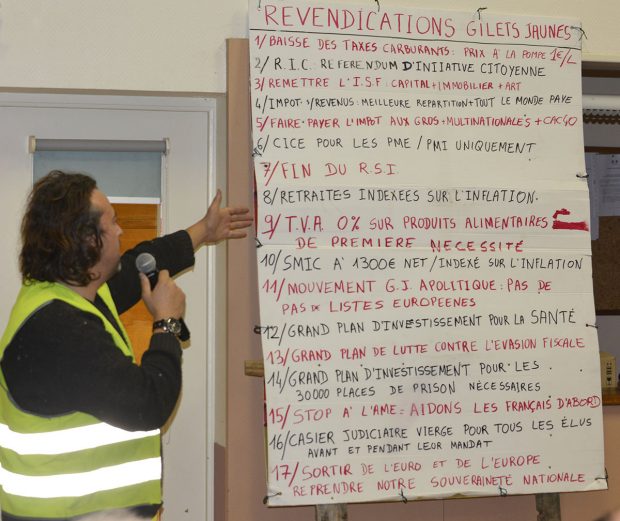 REVENDICATIONS GILETS JAUNES
1/ BAISSE DES TAXES CARBURANTS : PRIX A LA POMPE 1€/L
2/ R.I.C : REFERENDUM D'INITIATIVE CITOYENNE
3/ REMETTRE L'I.S.F : CAPITAL + IMMOBILIER + ART
4/ IMPOT S/REVENUS : MEILLEURE REPARTITION + TOUT LE MONDE PAYE
5/ FAIRE PAYER L'IMPOT AUX GROS + MULTINATIONALES + CAC40
6/ CICE POUR LES PME / PMI UNIQUEMENT
7/ FIN DU R.S.I.
8/ RETRAITES INDEXEES SUR L'INFLATION.
9/ T.V.A. 0% SUR PRODUITS ALIMENTAIRES
DE PREMIERE NECESSITÉ
10/ SMIC A 1300€ NET / INDEXÉ SUR L'INFLATION
11/ MOUVEMENT G.J. APOLITIQUE : PAS DE
PAS DE LISTES EUROPEENES
12/ GRAND PLAN D'INVESTISSEMENT POUR LA SANTÉ
13/ GRAND PLAN DE LUTTE CONTRE L'EVASION FISCALE
14/ GRAND PLAN D'INVESTISSEMENT POUR LES
30000 PLACES DE PRISON NÉCESSAIRES
15/ STOP A L'AME : AIDONS LES FRANÇAIS D'ABORD
16/ CASIER JUDICIAIRE VIERGE POUR TOUS LES ÉLUS
AVANT ET PENDANT LEUR MANDAT
17/ SORTIR DE L'EURO ET DE L'EUROPE
REPRENDRE NOTRE SOUVERAINETÉ NATIONALE